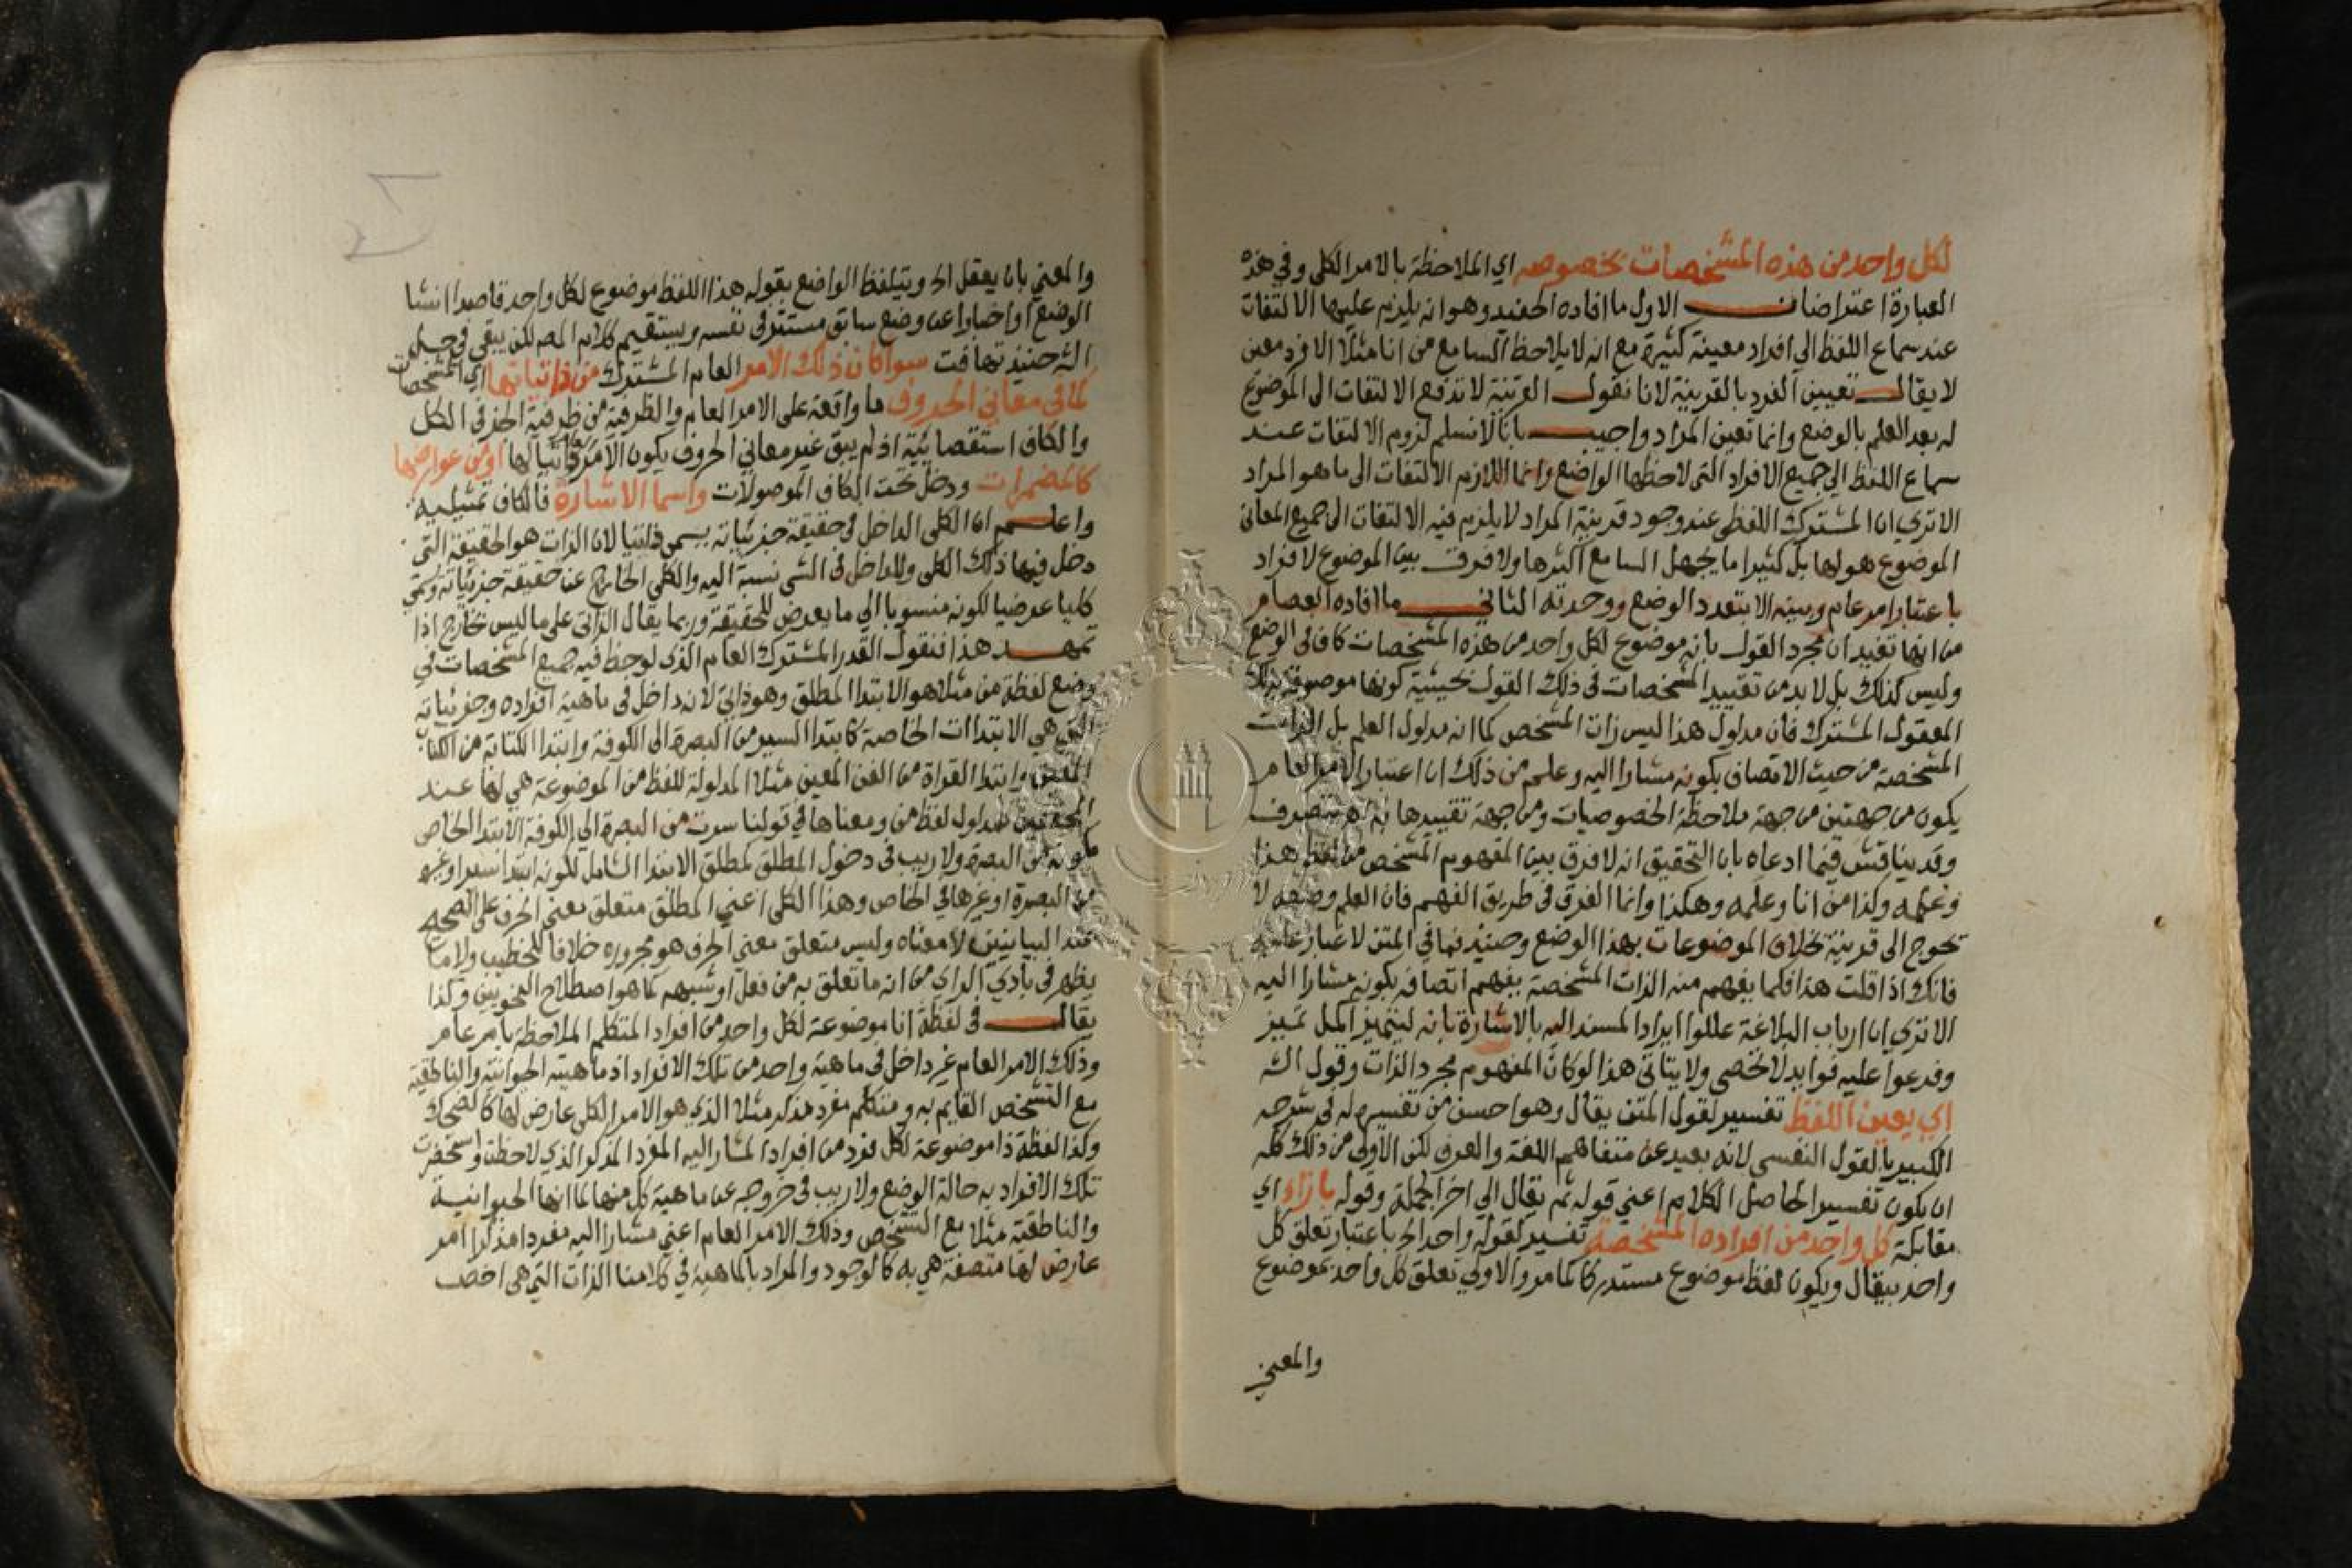 لكل واحد من هذه المشخصات بخصوصه اي الملاحظة بالامر الكلي وفي هذه
العبارة اعتراضان الاول ما افاده الحفيد وهو انه يلزم عليها الالتفات
عند سماع اللفظ الي افراد معينة كثيرة مع انه لا يلاحظ السامع من انا مثلا الا فرد معين
لا يقال تعيين الفرد بالقرينة لانا نقول القرينة لا تدفع الالتفات الى الموضوع
له بعد العلم بالوضع وانما تعين المراد واجيب بانا لا نسلم لزوم الالتفات عند
سماع اللفظ الي جميع الافراد التي لاحظها الواضع وانما اللازم الالتفات الى ما هو المراد
الا تري ان المشترك اللفظي عند وجود قرينة المراد لا يلزم فيه الالتفات الى جميع المعاني
الموضوع هو لها بل كثيرا ما يجهل السامع اكثرها ولا فرق بين الموضوع لافراد
باعتبار امر عام وبينه الا بتعدد الوضع ووحدته الثاني ما افاده العصام
من انها تفيد ان مجرد القول بانه موضوع لكل واحد من هذه المشخصات كاف في الوضع
وليس كذلك بل لا بد من تقييد المشخصات في ذلك القول بحيثية كونها موصوفة بذلك
المعقول المشترك فان مدلول هذا ليس ذات المشخص كما انه مدلول العلم بل الذات
المشخصة من حيث الاتصاف بكونه مشارا اليه وعلم من ذلك ان اعتبار الامر العام
يكون من جهتين من جهة ملاحظة الخصوصيات ومن جهة تقييدها به اهـ بتصرف
وقد يناقش فيما ادعاه بان التحقيق انه لا فرق بين المفهوم المشخص من لفظ هذا
وعلمه وكذا من انا وعلمه وهكذا وانما الفرق في طريق الفهم فان العلم وضعه لا
تحوج الى قرينة بخلاف الموضوعات بهذا الوضع وحينئذ فما في المتن لا غبار عليه
فانك اذا قلت هذا فكما يفهم منه الذات المشخصة يفهم اتصافه بكونه مشارا اليه
الا تري ان ارباب البلاغة عللوا ايراد المسند اليه بالاشارة بانه ليتميز اكمل تميز
وفرعوا عليه فوايد لا تحصى ولا يتاتي هذا لو كان المفهوم مجرد الذات وقول الشـ
اي يعين اللفظ تفسير لقول المتن يقال وهو احسن من تفسيره له في شرحه
الكبير بالقول النفسي لانه بعيد عن متفاهم اللغة والعرف لكن الاولى من ذلك كله
ان يكون تفسير الحاصل الكلام اعني قوله ثم يقال الى اخر الجملة وقوله بازاء اي
مقابلة كل واحد من افراده المشخصة تفسير لقوله واحد الخ باعتبار تعلق كل
واحد بيقال ويكون لفظ موضوع مستدركا كما مر والاولى تعلق كل واحد بموضوع
والمعني
والمعني بان يعقل الخ ويتلفظ الواضع بقوله هذا اللفظ موضوع لكل واحد قاصدا انشا
الوضع او اخبارا عن وضع سابق مستقر في نفسه ويستقيم كلام المصـ لكن يبقي في حل
الشـ حينئذ تهافت سوا كان ذلك الامر العام المشترك من ذاتياتها اي المشخصات
كما في معاني الحروف ما واقعة على الامر العام والظرفية من ظرفية الجز في الكل
والكاف استقصائية اذ لم يبق غير معاني الحروف يكون الامر العام ذاتيا لها او من عوارضها
كالمضمرات ودخل تحت الكاف الموصولات واسما الاشارة فالكاف تمثيلية
واعلم ان الكلي الداخل في حقيقة جزئياته يسمي ذاتيا لان الذات هو الحقيقة التي
دخل فيها ذلك الكلي وللداخل في الشي نسبة اليه والكلي الخارج عن حقيقة جزئياته وسمي
كليا عرضيا لكونه منسوبا الي ما يعرض للحقيقة وربما يقال الذاتي على ما ليس بخارج اذا
تمهد هذا فنقول القدر المشترك العام الذي لوحظ فيه جميع المشخصات في
وضع لفظة من مثلا هو الابتدا المطلق وهو ذاتي لانه داخل في ماهية افراده وجزئياته
التي هي الابتداات الخاصة كابتدا السير من البصرة الى الكوفة وابتدا الكتابة من الكتاب
المعين وابتدا القراة من الفن المعين مثلا المدلولة للفظ من الموضوعة هي لها عند
المحققين فمدلول لفظ من ومعناها في قولنا سرت من البصرة الي الكوفة الابتدا الخاص
بكونه من البصرة ولا ريب في دخول المطلق كمطلق الابتدا الشامل لكونه ابتدا سير او غيره
من البصرة او غيرها في الخاص وهذا الكلي اعني المطلق متعلق معنى الحرف على الصحيح
عند البيانيين لا معناه وليس متعلق معني الحرف هو مجروره خلافا للخطيب ولا ما
يظهر في بادي الراي من انه ما تعلق به من فعل او شبهه كما هو اصطلاح النحويين وكذا
يقال في لفظة انا موضوعة لكل واحد من افراد المتكلم الملاحظة بامر عام
وذلك الامر العام غير داخل في ماهية واحد من تلك الافراد اذ ماهيته الحيوانية والناطقية
مع التشخص القايم به ومتكلم مفرد مذكر مثلا الذي هو الامر الكلي عارض لها كالضحك
وكذا لفظة ذا موضوعة لكل فرد من افراد المشار اليه المفرد المذكر الذي لاحظته واستحضرت
تلك الافراد به حالة الوضع ولا ريب في خروجه عن ماهية كل منها لما انها الحيوانية
والناطقية مثلا مع التشخص وذلك الامر العام اعني مشارا اليه مفردا مذكرا امر
عارض لها متصفة هي به كالوجود والمراد بالماهية في كلامنا الذات التي هي اخص